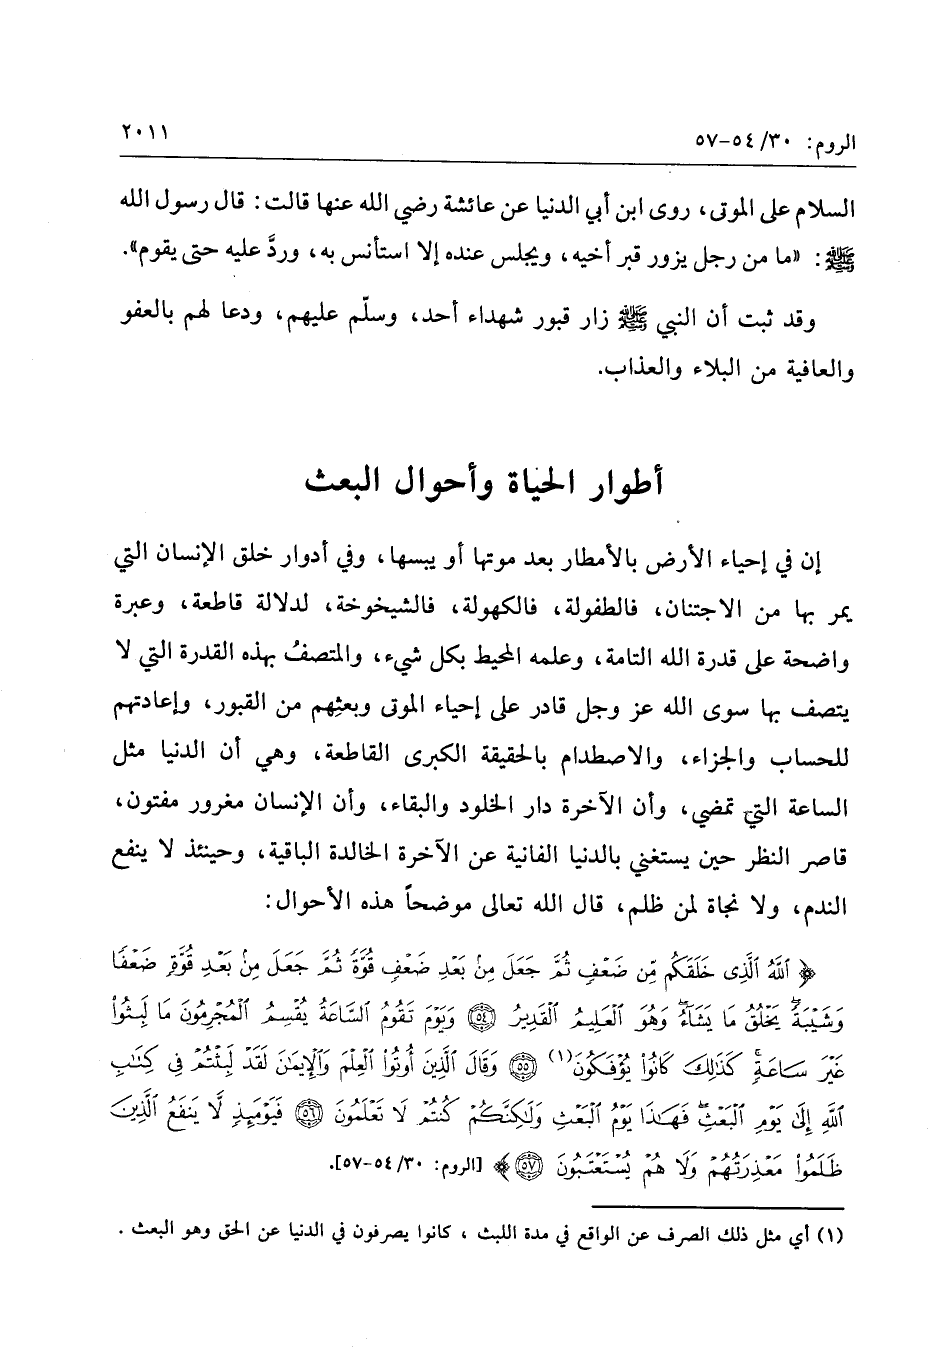 الروم: ٣٠/ ٥٤-٥٧
٢٠١١
السلام على الموتى، روى ابن أبي الدنيا عن عائشة رضي الله عنها قالت: قال رسول الله
ﷺ: «ما من رجل يزور قبر أخيه، ويجلس عنده إلا استأنس به، وردَّ عليه حتى يقوم».
وقد ثبت أن النبي ﷺ زار قبور شهداء أحد، وسلّم عليهم، ودعا لهم بالعفو
والعافية من البلاء والعذاب.
أطوار الحياة وأحوال البعث
إن في إحياء الأرض بالأمطار بعد موتها أو يبسها، وفي أدوار خلق الإنسان التي
يمر بها من الاجتنان، فالطفولة، فالكهولة، فالشيخوخة، لدلالة قاطعة، وعبرة
واضحة على قدرة الله التامة، وعلمه المحيط بكل شيء، والمتصفُ بهذه القدرة التي لا
يتصف بها سوى الله عز وجل قادر على إحياء الموتى وبعثِهم من القبور، وإعادتهم
للحساب والجزاء، والاصطدام بالحقيقة الكبرى القاطعة، وهي أن الدنيا مثل
الساعة التي تمضي، وأن الآخرة دار الخلود والبقاء، وأن الإنسان مغرور مفتون،
قاصر النظر حين يستغني بالدنيا الفانية عن الآخرة الخالدة الباقية، وحينئذ لا ينفع
الندم، ولا نجاة لمن ظلم، قال الله تعالى موضحاً هذه الأحوال:
﴿ ٱللَّهُ ٱلَّذِى خَلَقَكُم مِّن ضَعْفٍ ثُمَّ جَعَلَ مِنۢ بَعْدِ ضَعْفٍ قُوَّةً ثُمَّ جَعَلَ مِنۢ بَعْدِ قُوَّةٍ ضَعْفًا
وَشَيْبَةً ۚ يَخْلُقُ مَا يَشَآءُ ۖ وَهُوَ ٱلْعَلِيمُ ٱلْقَدِيرُ ٥٤ وَيَوْمَ تَقُومُ ٱلسَّاعَةُ يُقْسِمُ ٱلْمُجْرِمُونَ مَا لَبِثُوا۟
غَيْرَ سَاعَةٍ ۚ كَذَٰلِكَ كَانُوا۟ يُؤْفَكُونَ(١) ٥٥ وَقَالَ ٱلَّذِينَ أُوتُوا۟ ٱلْعِلْمَ وَٱلْإِيمَٰنَ لَقَدْ لَبِثْتُمْ فِى كِتَٰبِ
ٱللَّهِ إِلَىٰ يَوْمِ ٱلْبَعْثِ ۖ فَهَٰذَا يَوْمُ ٱلْبَعْثِ وَلَٰكِنَّكُمْ كُنتُمْ لَا تَعْلَمُونَ ٥٦ فَيَوْمَئِذٍ لَّا يَنفَعُ ٱلَّذِينَ
ظَلَمُوا۟ مَعْذِرَتُهُمْ وَلَا هُمْ يُسْتَعْتَبُونَ ٥٧﴾ [الروم: ٣٠/ ٥٤-٥٧].
(١) أي مثل ذلك الصرف عن الواقع في مدة اللبث ، كانوا يصرفون في الدنيا عن الحق وهو البعث .